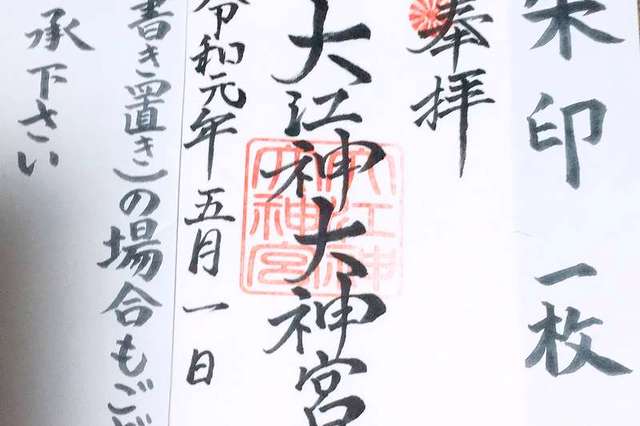 朱印 一枚
奉拝
大江神大神宮
大江神
大神宮
令和元年五月一日
書き置き)の場合もご
承下さい